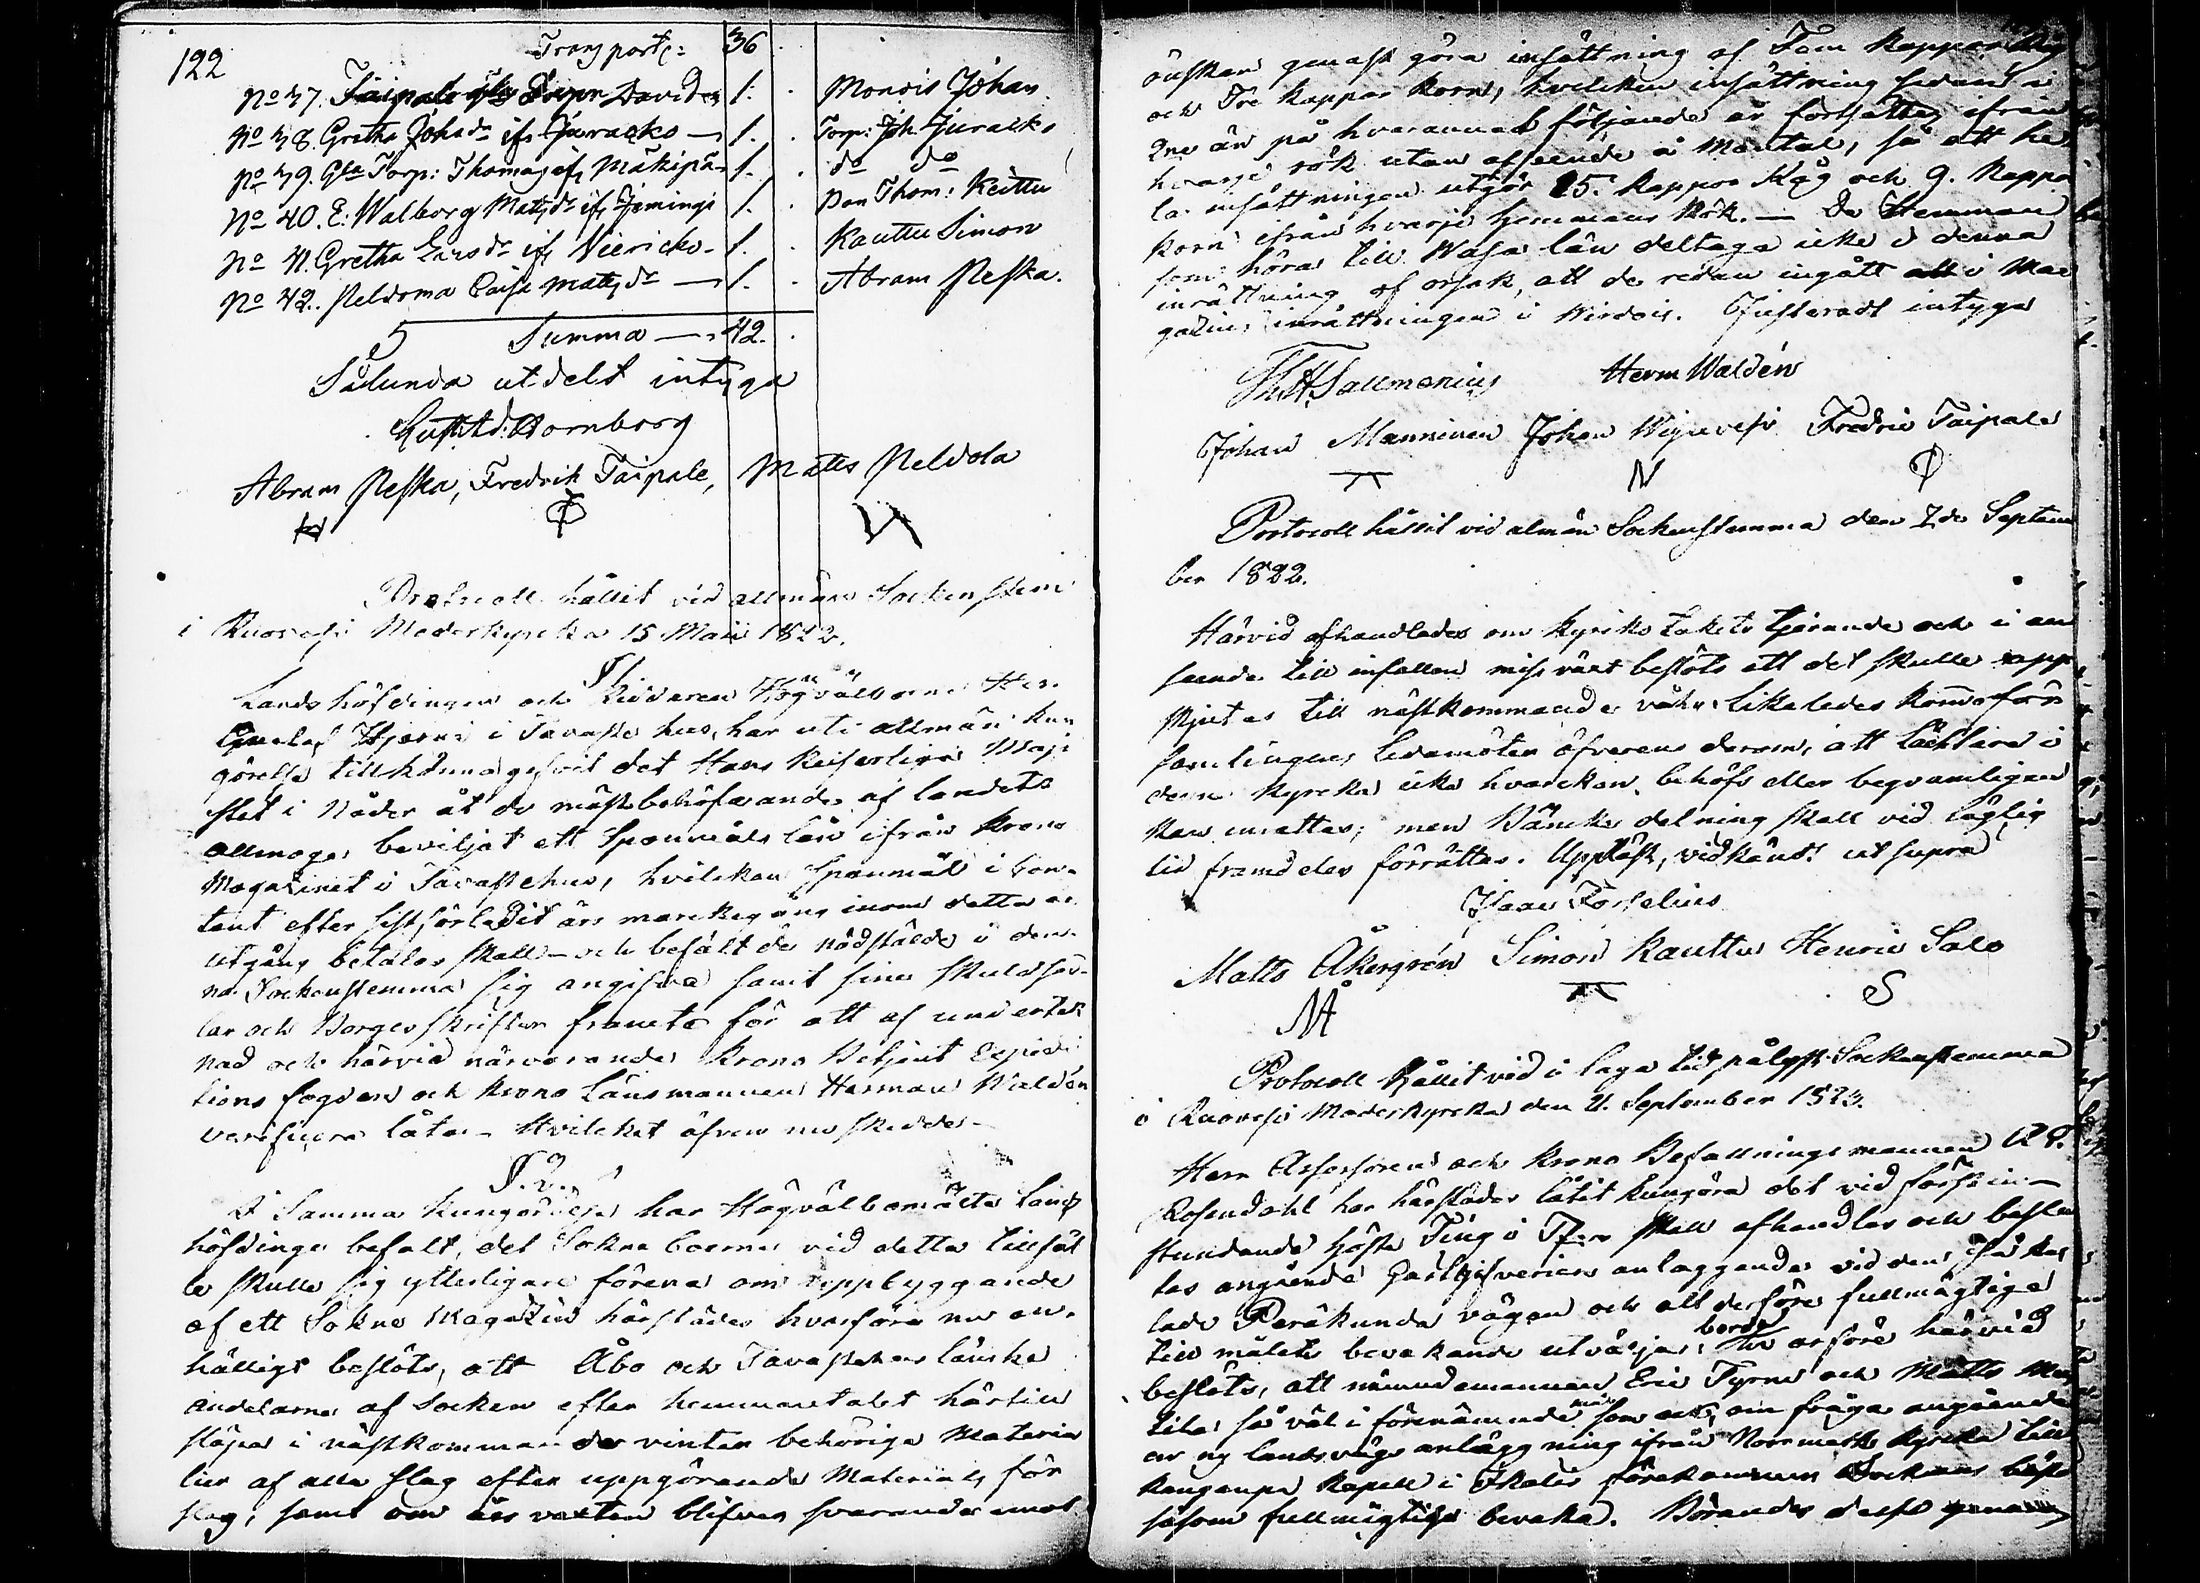 122
Transport: 36
No 37. Taipale Davids 1. Monois Johan
No 38. Gretha Johs dr ifr Juracko — 1. Torp: Joh Juracko
No 39. Gla Torp: Thomas ifr Mäkipä 1. do do
No 40. E: Walborg Matts dr ifr Jämingi 1. Thom: Keittu
No 41. Gretha Larsdr ifr Niericko 1. Kauttu Simon
No 42. Peldoma Caisa Matts dr — 1. Abram Peska.
Summa — 42.
Sålunda utdelt intyga
Gust. Ad: Hornborg
Abram Peska, Fredrik Taipale, Matts Peldola
Protocoll hållit vid allmän Sockenstem
i Ruovesi Moderkyrcka 15 Maii 1822.
§ 1.
Landshöfdingen och Riddaren Högvälborne Herr
Gustaf Hjerne i Tavaste hus, har uti allmän kun
görelse tillkänna gifvit det Hans Keiserliga Maje
stet i Nåder åt de mäst behöfvande af landets
allmoge beviljat ett Spanmåls lån ifrån Krono
Magazinet i Tavastehus, hvilcken Spanmål i Con-
tant efter sistförledit års marckegång inom detta års
utgång betalas skall — och befalt de nödstälde i den-
na Sockenstemma sig angifva samt sine skuldsed-
lar och Borgesskrifter framete för att af underteck
nad och härvid närvarande Krono Betjent Expedi
tions fogden och Krono Länsmannen Herman Waldén
verificera låta. — Hvilcket äfven nu skedde. —
§. 2.
I Samma Kungörelse har Högvälbemälte Lands
höfdinge befalt, det Sokne boerne vid detta tillfäl
le skulle sig ytterligare förena om uppbyggande
af ett Sokne Magazin härstädes hvarföre nu en-
hälligt beslöts, att Åbo och Tavastehus länska
andelarne af Socken efter hemmantalet härtill
släpa i nästkommande vinter behöriga Materia
lier af alla slag efter uppgörande Materials för
slag; samt om års vexten blifver svarande emot
önskan genast göra insättning af Fem Kappar Råg
och Tre Kappar Korn, hvilcken insättning sedan i
2ne år på hvarannat följande år fortsättes ifrån
hvarje rök utan afseende å Mantal, så att he
la insättningen utgör 15. Kappar Råg och 9. Kappar
Korn ifrån hvarje hemmans Rök. — De Hemman
som höra till Wasa län deltaga icke i denna
inrättning af orsak, att de redan ingått i Ma
gazins inrättningen i Wirdois. Justeradt intyga
Th. H. Salmenius Herm Waldén
Johan Manninen Johan Wisuvesi Fredric Taipale
Protocoll hållit vid almän Sockenstemma den 7de Septem
ber 1822.
Härvid afhandlades om Kyrko takets tjärande och i an
seende till infallen missväxt beslöts att det skulle upp
skjutas till nästkommande våhr. Likaledes komo för
samlingens Ledamöter öfverens derom, att Läcktare i
denna Kyrcka icke hvarcken behöfs eller beqvämligen
kan inrättas; men Bäncke delning skall vid läglig
tid framdeles förrättas. Uppläst, vidkändt ut supra
Isaac Forselius
Matts Åkergrén Simon Kauttu Henric Salo
MÅ S
Protocoll hållit vid i laga tid pålyst Sockenstemma
i Ruovesi Moderkyrcka den 21. September 1823.
Herr Assessoren och Krono Befallningsmannen A. P.
Rosendahl har härstädes låtit kungöra det vid först in-
stundande Höste Ting i Tfors skall afhandlas och beslu
tas angående Gästgifveriers anläggande vid den så kal
lade Peräkunda vägen och att derföre fullmägtige
till målets bevakande utväljas borde; Hvarföre härvid
beslöts, att nämndemannen Eric Tyrne och Matts
så väl i förenämnde mål som och om fråga angående
en ny landsvägs anläggning ifrån Norrmark Kyrcka till
Kangaspä Kapell i Ikalis förekommer Sockens bästa
såsom fullmägtige bevaka. Börandes desse